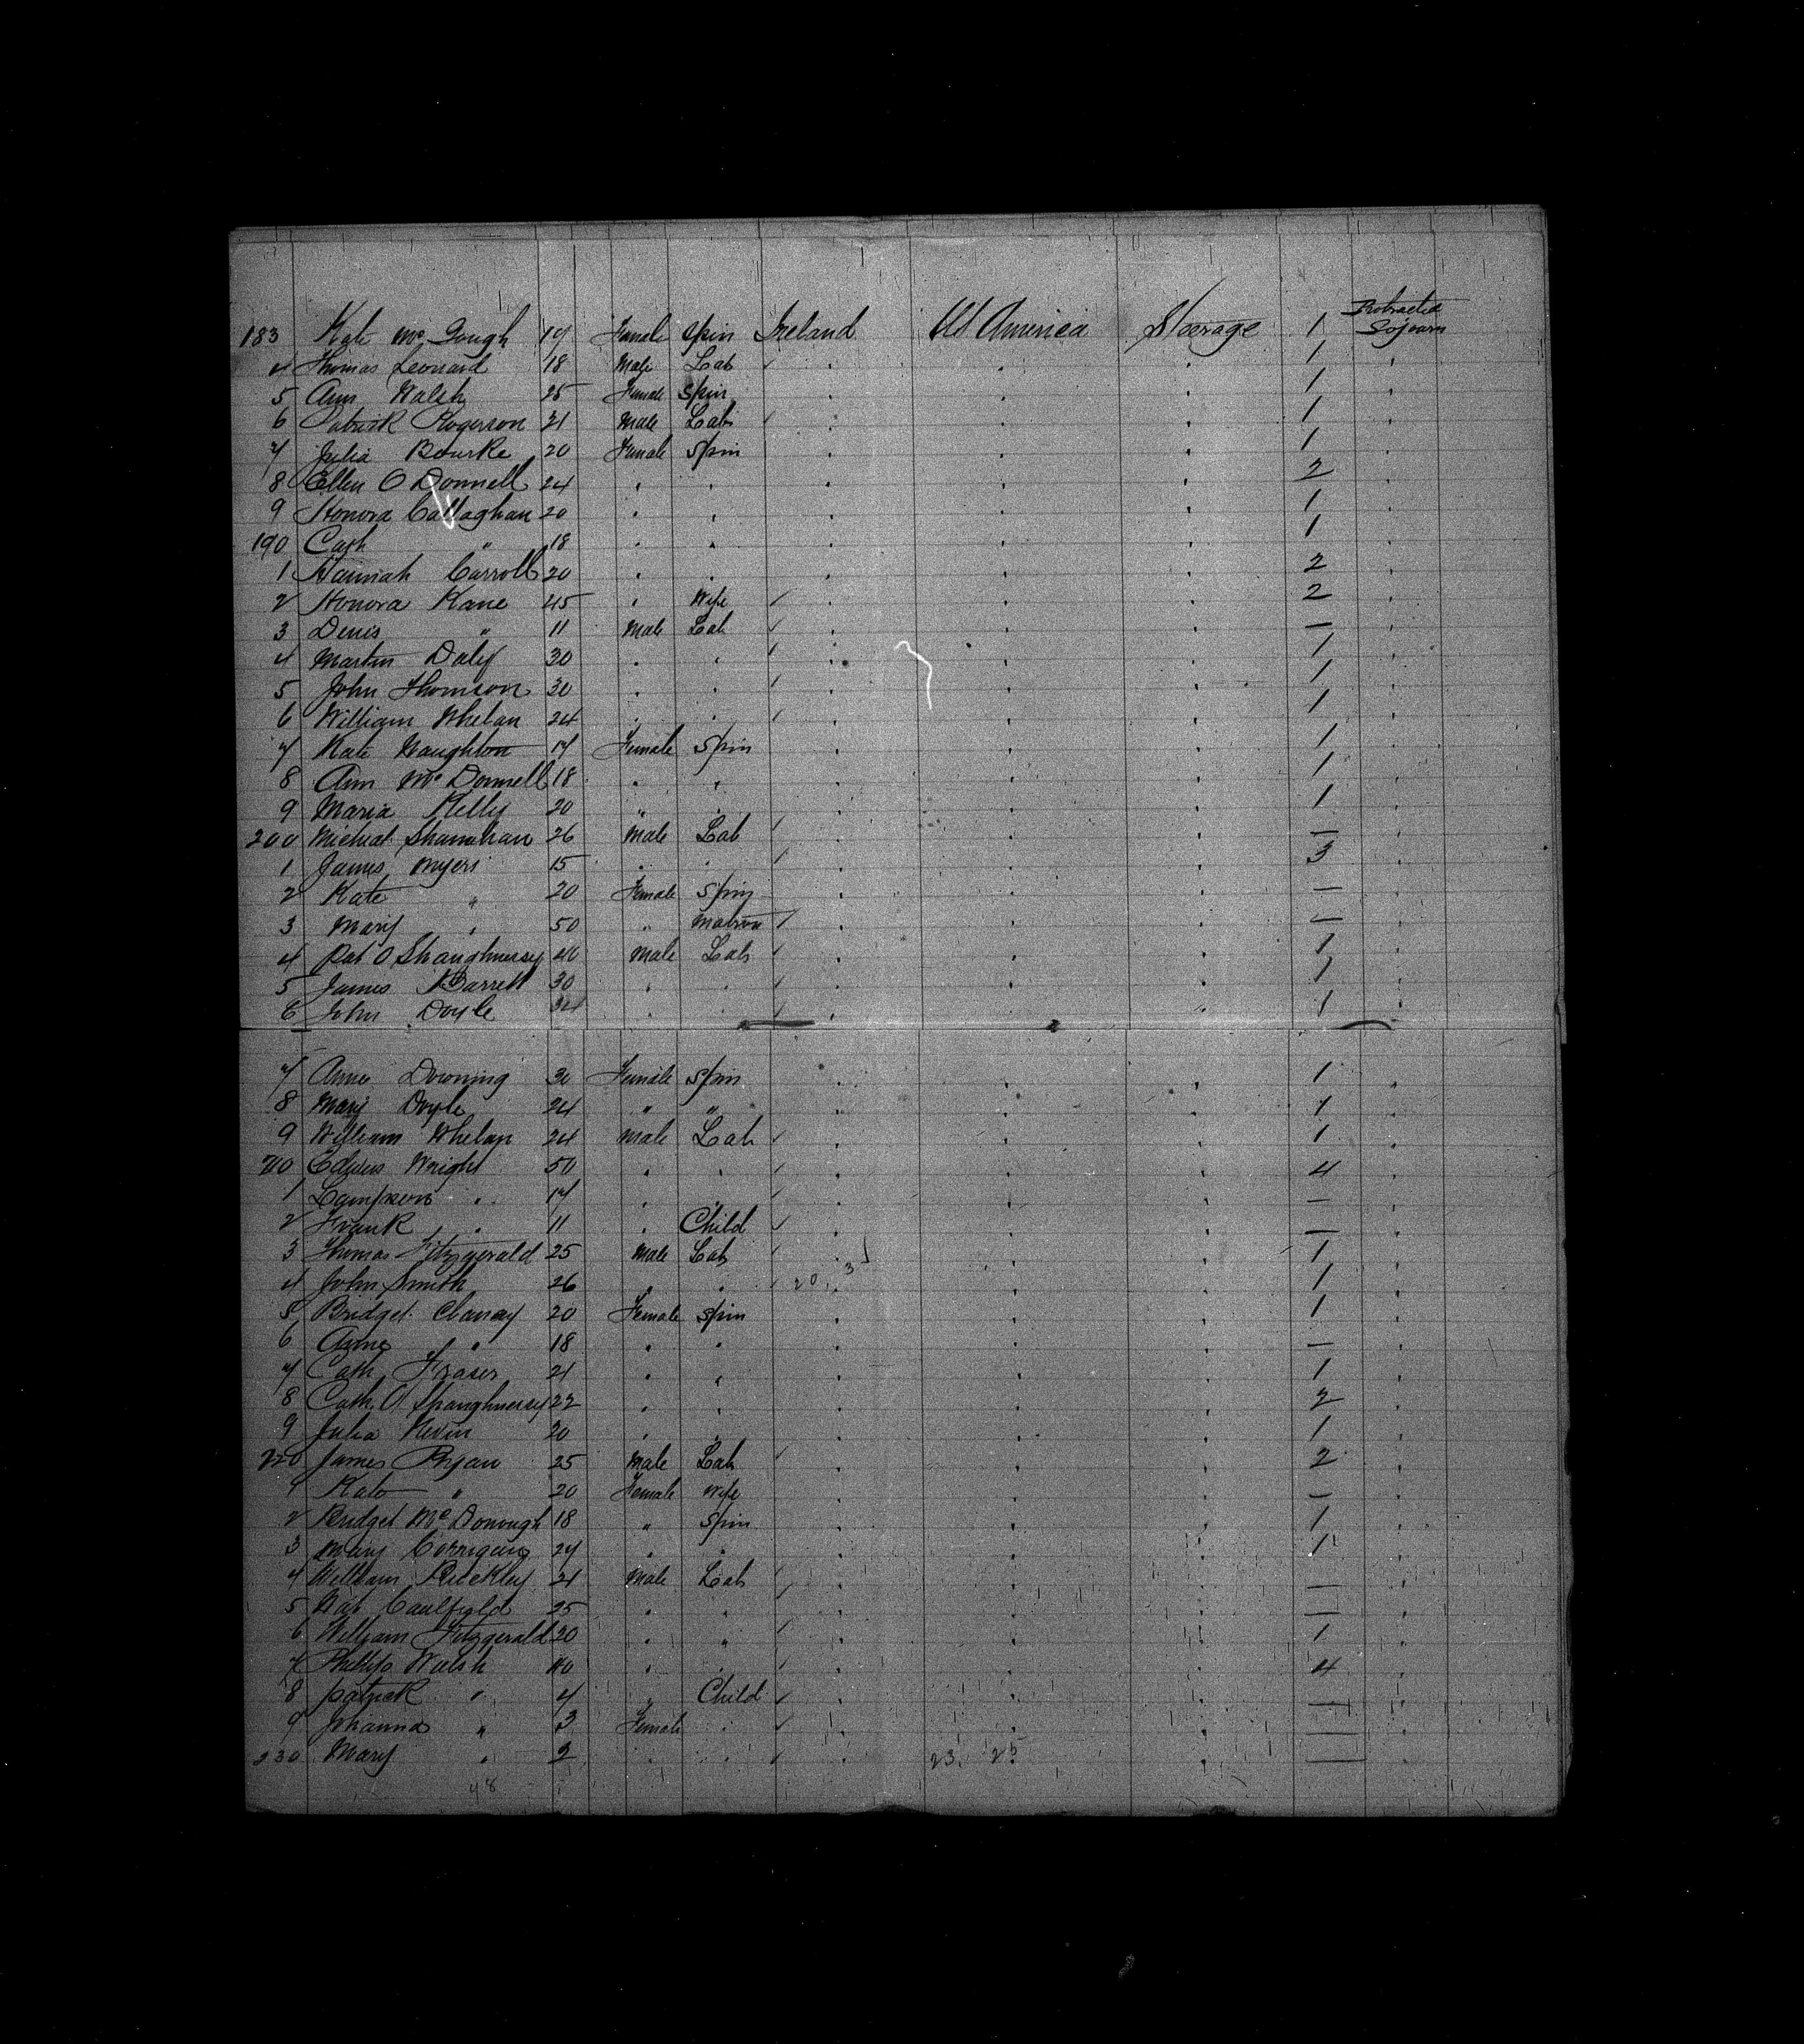 Protracted
183 Kate Mc Gough 19 Female Spin Ireland US America Steerage 1 Sojourn
4 Thomas Leonard 18 Male Lab 1
5 Ann Walsh 25 Female Spin 1
6 Patrick Rogerson 21 Male Lab 1
7 Julia Bourke 20 Female Spin 1
8 Ellen O Donnell 24 " " 2
9 Honora Callaghan 20 " " 1
190 Cath " 18 " " 1
1 Hannah Carroll 20 " " 2
2 Honora Kane 45 " Wife 2
3 Denis " 11 Male Lab —
4 Martin Daly 30 " " 1
5 John Thomson 30 " " 1
6 William Whelan 24 " " 1
7 Kate Naughton 17 Female Spin 1
8 Ann Mc Donnell 18 " " 1
9 Maria Kelly 20 " " 1
200 Micheal Shanahan 26 Male Lab —
1 James Myers 15 " " 3
2 Kate " 20 Female Spin —
3 Mary " 50 " Matron —
4 Pat O Shaughnessy Male Lab 1
5 James Barrett 30 " " 1
6 John Doyle 34 " " 1
7 Anne Downing 30 Female Spin 1
8 Mary Doyle 24 " " 1
9 William Whelan 24 Male Lab 1
210 Wright 50 " " 4
1 " 17 " " —
2 Frank " 11 " Child —
3 Thomas Fitzgerald 25 Male Lab 1
4 John Smith 26 " " 20 3 1
5 Bridget 20 Female Spin 1
6 Anne " 18 " " —
7 Cath Fraser 21 " " 1
8 Cath O Shaughnessy 22 " " 2
9 Julia Nevin 20 " " 1
220 James Ryan 25 Male Lab 2
1 Kate " 20 Female Wife —
2 Bridget Mc Donough 18 " Spin 1
3 Mary " " 1
4 William Buckley 21 Male Lab —
5 Caulfield 25 " " —
6 William Fitzgerald 20 " " 1
7 Phillip Walsh 40 " " 4
8 Patrick " 4 " Child —
9 Johanna " 3 Female " —
230 Mary " 2 " " 23. 25 —
48